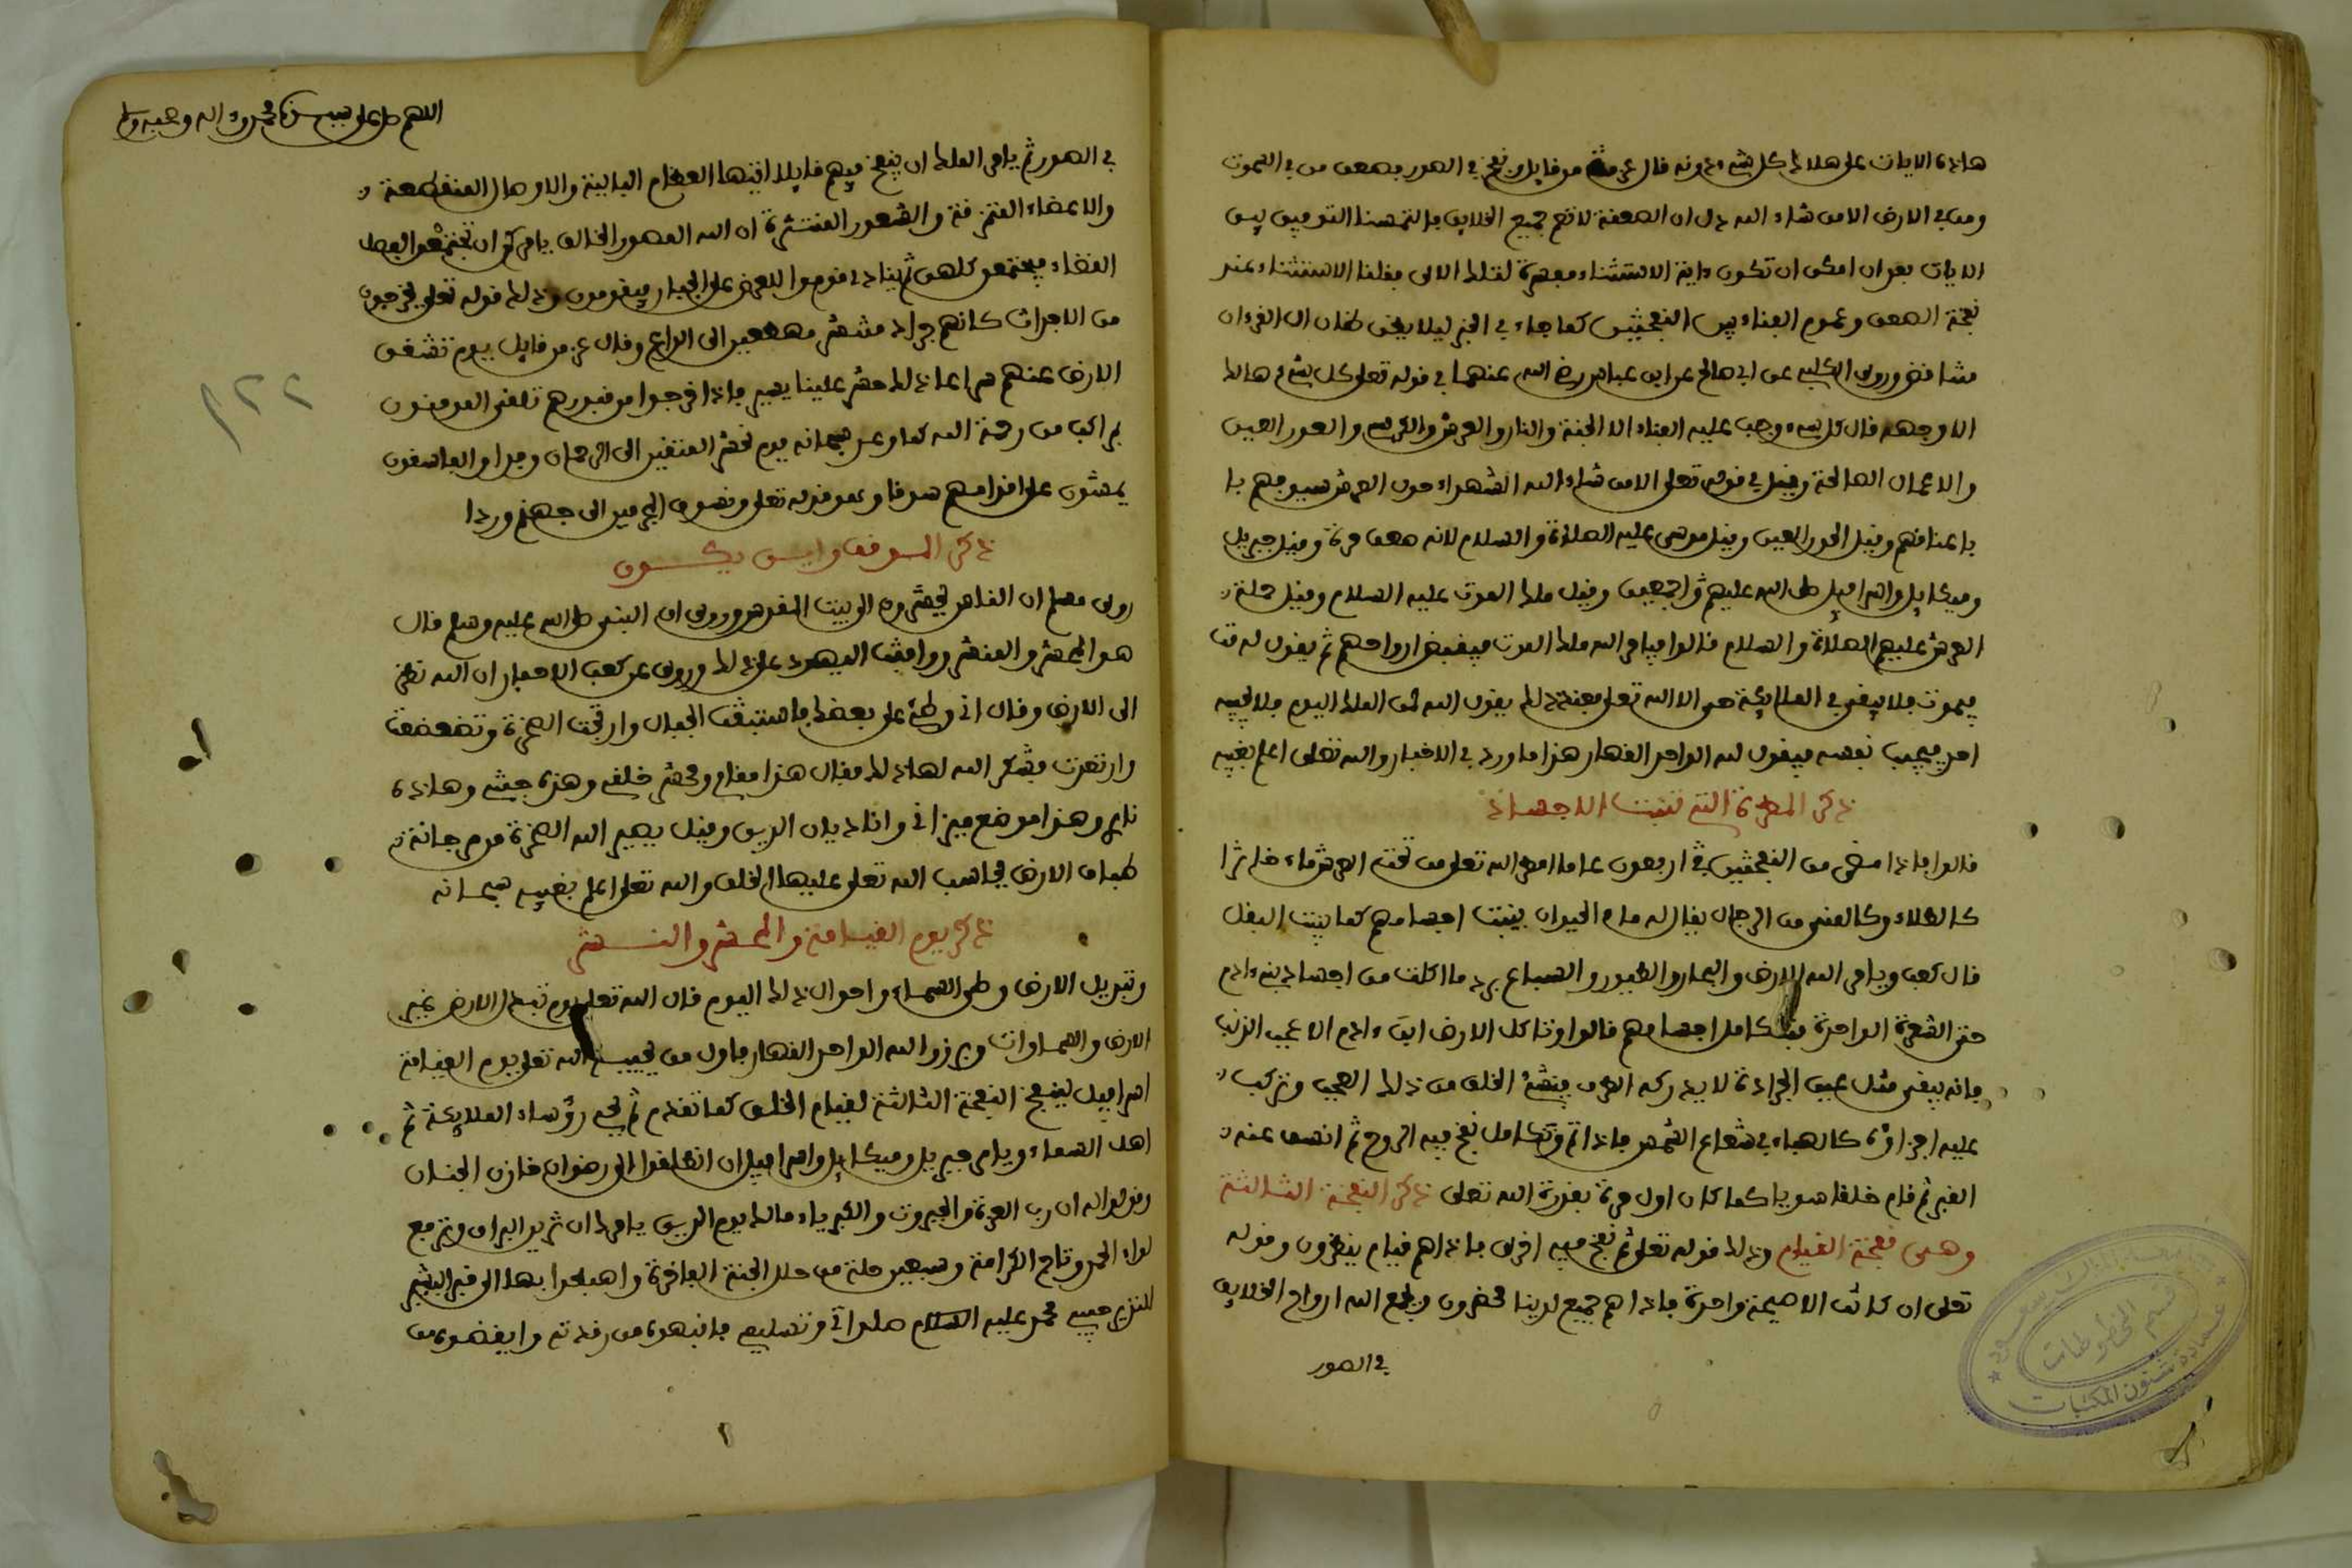 هاذه الايات على هلاك كل شيء دونه قال عز من قايل ونفخ في الصور فصعق من في السموت
ومن في الارض الا من شاء الله دل ان الصعقة لا تعم جميع الخلايق فالتمسنا التوفيق بين
الايات بعد ان امكن ان تكون ءاية الاستثناء مفسرة لتلك الاى فقلنا الاستثناء عند
نفخة الصعق وعموم الفناء بين النفختين كما جاء في الخبر ليلا يظن ظان ان القرءان
متناقض وروى الكلبي عن ابي صالح عن ابن عباس رضي الله عنهما في قوله تعلى كل شيء هالك
الا وجهه قال كل شيء وجب عليه الفناء الا الجنة والنار والعرش والكرسي والحور العين
والاعمال الصالحة وقيل في قوله تعلى الا من شاء الله الشهداء حول العرش سيوفهم با
باعناقهم وقيل الحور العين وقيل موسى عليه الصلاة والسلام لانه صعق مرة وقيل جبريل
وميكايل واسرافيل صلى الله عليهم اجمعين وقيل ملك الموت عليه السلام وقيل حملة
العرش عليهم الصلاة والسلام قالوا فيامر الله ملك الموت فيقبض ارواحهم ثم يقول له مت
فيموت فلا يبقى في الملايكة حي الا الله تعلى فعند ذلك يقول الله لمن الملك اليوم فلا يجيبه
احد فيجيب نفسه فيقول لله الواحد القهار هذا ما ورد في الاخبار والله تعلى اعلم بغيبه
ذكر المطرة التي تنبت الاجساد
قالوا فاذا مضى من النفختين اربعون عاما امطر الله تعلى من تحت العرش ماء خاثرا
كالطلاء وكالمني من الرجال يقال له ماء الحيوان فينبت اجسامهم كما ينبت البقل
قال كعب ويامر الله الارض والبحار والطيور والسباع برد ما اكلت من اجساد بني ءادم
حتى الشعرة الواحدة فتتكامل اجسامهم قالوا وتاكل الارض ابن ءادم الا عجب الذنب
فانه يبقى مثل عين الجرادة لا يدركه الطرف فينشئ الخلق من ذلك العجب وتركب
عليه اجزاؤه كالهباء في شعاع الشمس فاذا تم وتكامل نفخ فيه الروح ثم انشق عنه
القبر ثم قام خلقا سويا كما كان اول مرة بقدرة الله تعلى ذكر النفخة الثالثة
وهي نفخة القيام وذلك قوله تعلى ثم نفخ فيه اخرى فاذا هم قيام ينظرون وقوله
تعلى ان كانت الا صيحة واحدة فاذا هم جميع لدينا محضرون ويجمع الله ارواح الخلايق
في الصور
قسم المخطوطات
عمادة شئون المكتبات
اللهم صل على سيدنا محمد واله وصحبه وسلم
في الصور ثم يامر الملك ان ينفخ فيهم قايلا ايتها العظام البالية والاوصال المنقطعة
والاعضاء المتمزقة والشعور المنتثرة ان الله المصور الخالق يامركم ان تجتمعوا لفصل
القضاء فيجتمعن كلهن ثم ينادى قوموا للعرض على الجبار فيقومون وذلك قوله تعلى يخرجون
من الاجداث كانهم جراد منتشر مهطعين الى الداع وقال عز من قايل يوم تشقق
الارض عنهم سراعا ذلك حشر علينا يسير فاذا خرجوا من قبورهم تلقى المومنون
بمراكب من رحمة الله كما وعد سبحانه يوم نحشر المتقين الى الرحمان وفدا والفاسقون
يمشون على اقدامهم سوقا وهو قوله تعلى ونسوق المجرمين الى جهنم وردا
ذكر الموقف واين يكون
روى مسلم ان الناس يحشروم الى بيت المقدس وروى ان النبي صلى الله عليه وسلم قال
هو المحشر والمنشر ووافقت اليهود على ذلك وروى عن كعب الاحبار ان الله نظر
الى الارض وقال اني وطئ على بعضك فاستبقت الجبال وارتجت الصخرة وتضعضعت
وارتعدت فشكر الله لها ذلك فقال هذا مقامي ومحشر خلقي وهذه جنتي وهاذه
ناري وهذا موضع ميزاني وانا ديان الدين وقيل يصير الله الصخرة من مرجانة
طباق الارض يحاسب الله تعلى عليها الخلق والله تعلى اعلم بغيبه سبحانه
ذكر يوم القيامة والمحشر والنشر
وتبديل الارض وطي السماء واحوال ذلك اليوم قال الله تعلى يوم تبدل الارض غير
الارض والسماوات وبرزوا لله الواحد القهار فاول من يحييه الله تعلى يوم القيامة
اسرافيل لينفخ النفخة الثالثة لقيام الخلق كما تقدم ثم يحي رؤساء الملايكة ثم
اهل السماء ويامر جبريل وميكايل واسرافيل ان انطلقوا الى رضوان خازن الجنان
وقولوا له ان رب العزة والجبروت والكبرياء مالك يوم الدين يامرك ان تزين البراق وترفع
لواء الحمد وتاج الكرامة وسبعين حلة من حلل الجنة الفاخرة واهبطوا بها الى قبر البشير
النذير حبيبي محمد عليه السلام صلواتي وتسليمي فانبهوه من رقدته وايقظوه من